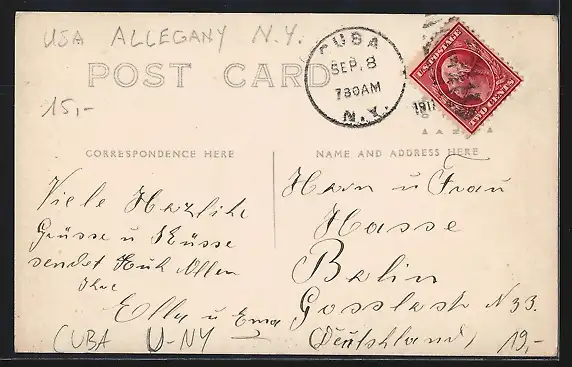 USA ALLEGANY N.Y.
POST CARD
15,-
CUBA
SEP. 8
730AM
N.Y.
1911
U.S. POSTAGE
TWO CENTS
CORRESPONDENCE HERE
NAME AND ADDRESS HERE
Viele Herzliche
Grüsse u Küsse
sendet Euch Allen
Ihre
Ella u Erna
Herrn u Frau
Hasse
Berlin
Gosslerstr N 33.
Deutschland,
19,-
CUBA U-NY